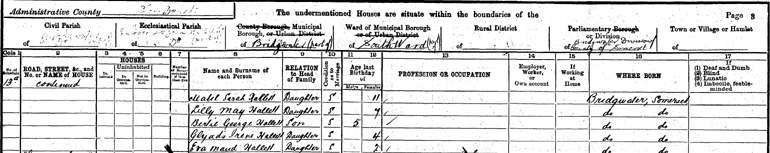 Administrative County
The undermentioned Houses are situate within the boundaries of the
Page 8
Civil Parish
Ecclesiastical Parish
County Borough, Municipal Borough, or Urban District
Ward of Municipal Borough or of Urban District
Rural District
Parliamentary Borough or Division
Town or Village or Hamlet
of
of
of Bridgwater
of South Ward
of
of
of
Cols. 1 2 3 4 5 6 7 8 9 10 11 12 13 14 15 16 17
No. of Schedule
ROAD, STREET, &c., and No. or NAME of HOUSE
HOUSES
Name and Surname of each Person
RELATION to Head of Family
Age last Birthday of
PROFESSION OR OCCUPATION
Employer, Worker, or Own account
If Working at Home
WHERE BORN
If (1) Deaf and Dumb (2) Blind (3) Lunatic (4) Imbecile, feeble-minded
Uninhabited
Males Females
13 continued
Mabel Sarah Hallett Daughter S 11 Bridgwater, Somerset
Lilly May Hallett Daughter S 7 do do
Bertie George Hallett Son S 5 do do
Glyads Irene Hallett Daughter S 4 do do
Eva Maud Hallett Daughter S 2 do do